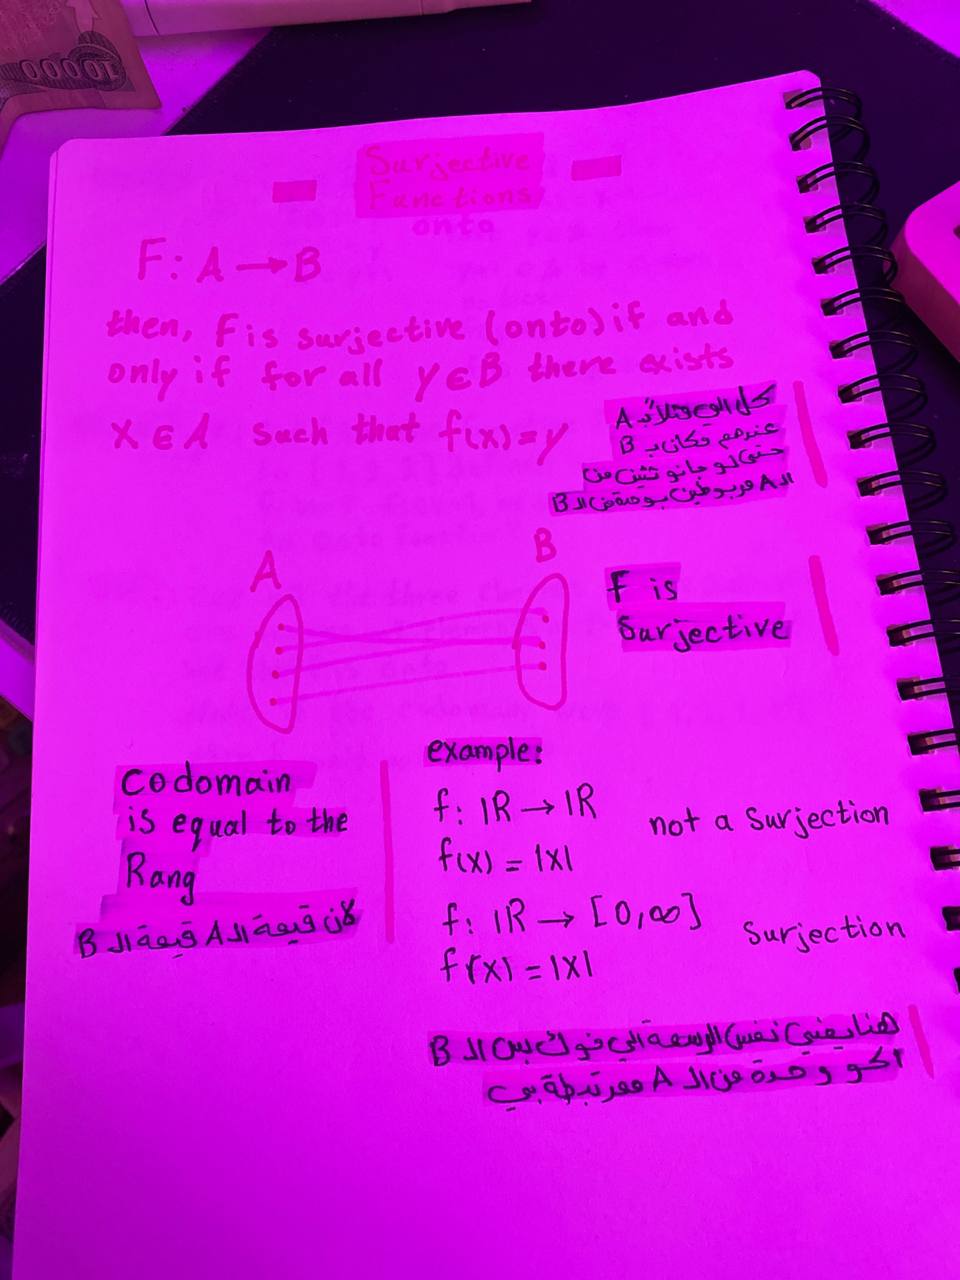 10000
Surjective
Functions
onto
F: A → B
then, F is surjective (onto) if and
only if for all y ∈ B there exists
x ∈ A such that f(x) = y
كل الي بـ A
عندهم مكان بـ B
حتى لو جانو ثنين من
الـ A مربوطين بوحدة من الـ B
A
B
F is
Surjective
Codomain
is equal to the
Rang
لان قيمة الـ A قيمة الـ B
example:
f: ℝ → ℝ
f(x) = |x|
not a Surjection
f: ℝ → [0,∞]
f(x) = |x|
Surjection
هنا يعني نفس الرسمة الي فوك بس الـ B
اكو وحدة من الـ A مرتبطة بي